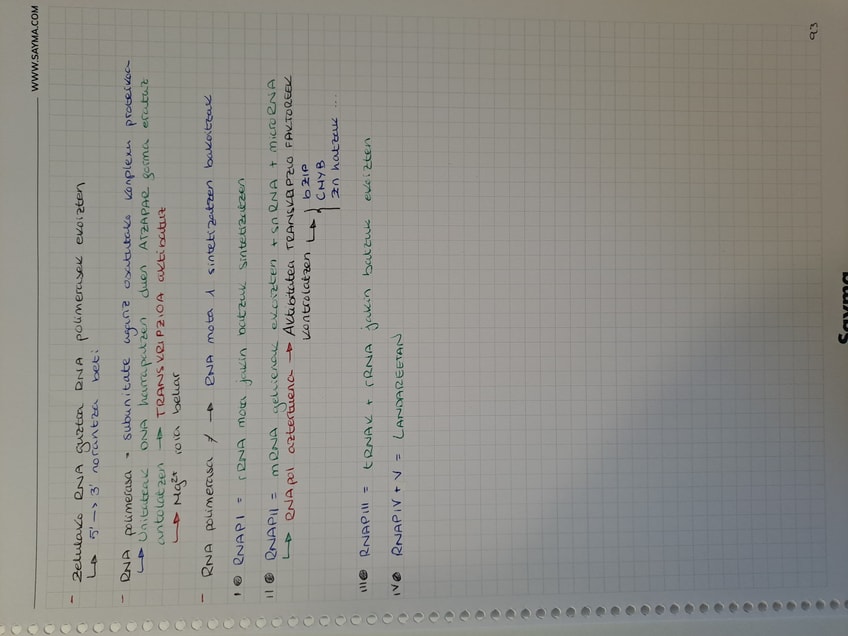 WWW.SAYMA.COM
- Zelulako RNA guztia RNA polimerasek ekoizten
↳ 5' → 3' norantza beti
- RNA polimerasa = subunitate ugariz osatutako konplexu proteikoa
↳ Unitateak DNA harrapatzen duen ATZAPAR forma eratuz
antolatzen → TRANSKRIPZIOA aktibatuz
↳ Mg2+ ioia behar
- RNA polimerasa ≠ → RNA mota 1 sintetizatzen bakoitzak
I RNAPI = rRNA mota jakin batzuk sintetizatzen
II RNAPII = mRNA gehienak ekoizten + snRNA + microRNA
↳ RNApol aztertuena → Aktibitatea TRANSKRIPZIO FAKTOREEK
kontrolatzen ↳ { bZIP
CMYB
Zn hatzak ...
III RNAPIII = tRNAK + rRNA jakin batzuk ekoizten
IV RNAPIV + V = LANDAREETAN
93
Sayma